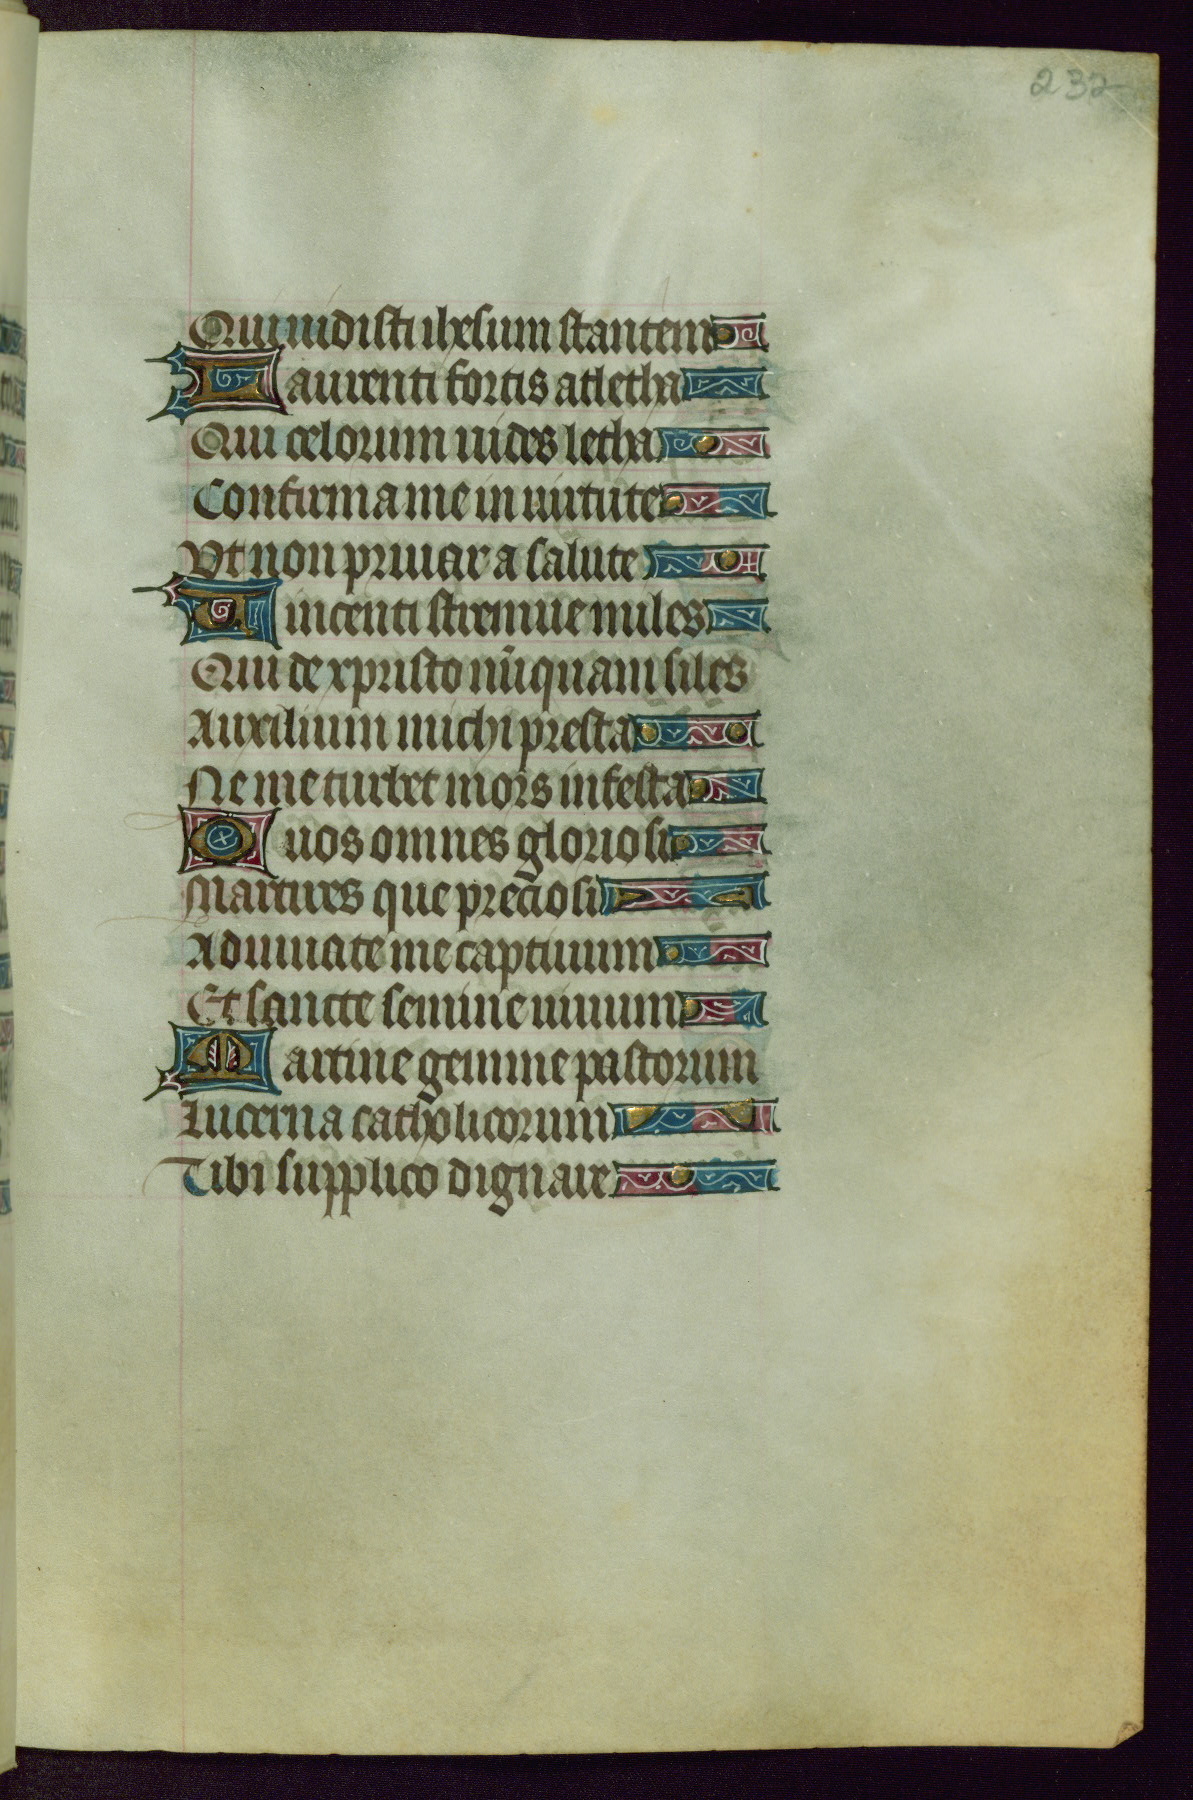 232
Qui uidisti ihesum stantem
Laurenti fortis atletha
Qui celorum uides letha
Confirma me in uirtute
Vt non priuar a salute
Vincenti strenue miles
Qui de xpristo nūquam siles
Auxilium michi presta
Ne me turbet mors infesta
O uos omnes gloriosi
Martires que preciosi
Adiuuate me captiuum
Et sancte semine uiuum
Martine gemme pastorum
Lucerna catholicorum
Tibi supplico dignare